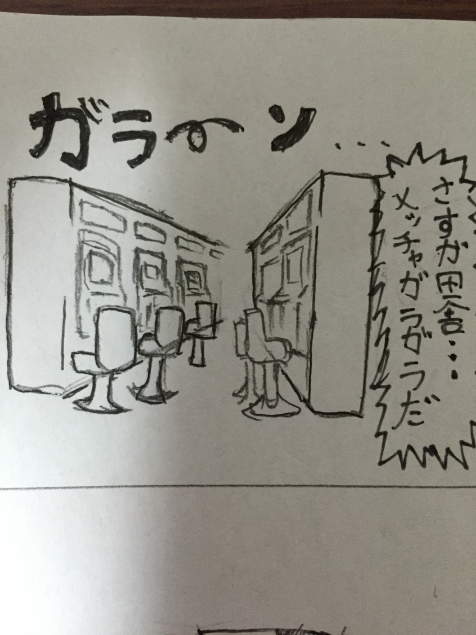 ガラ〜ン...
さすが田舎...
メッチャガラガラだ